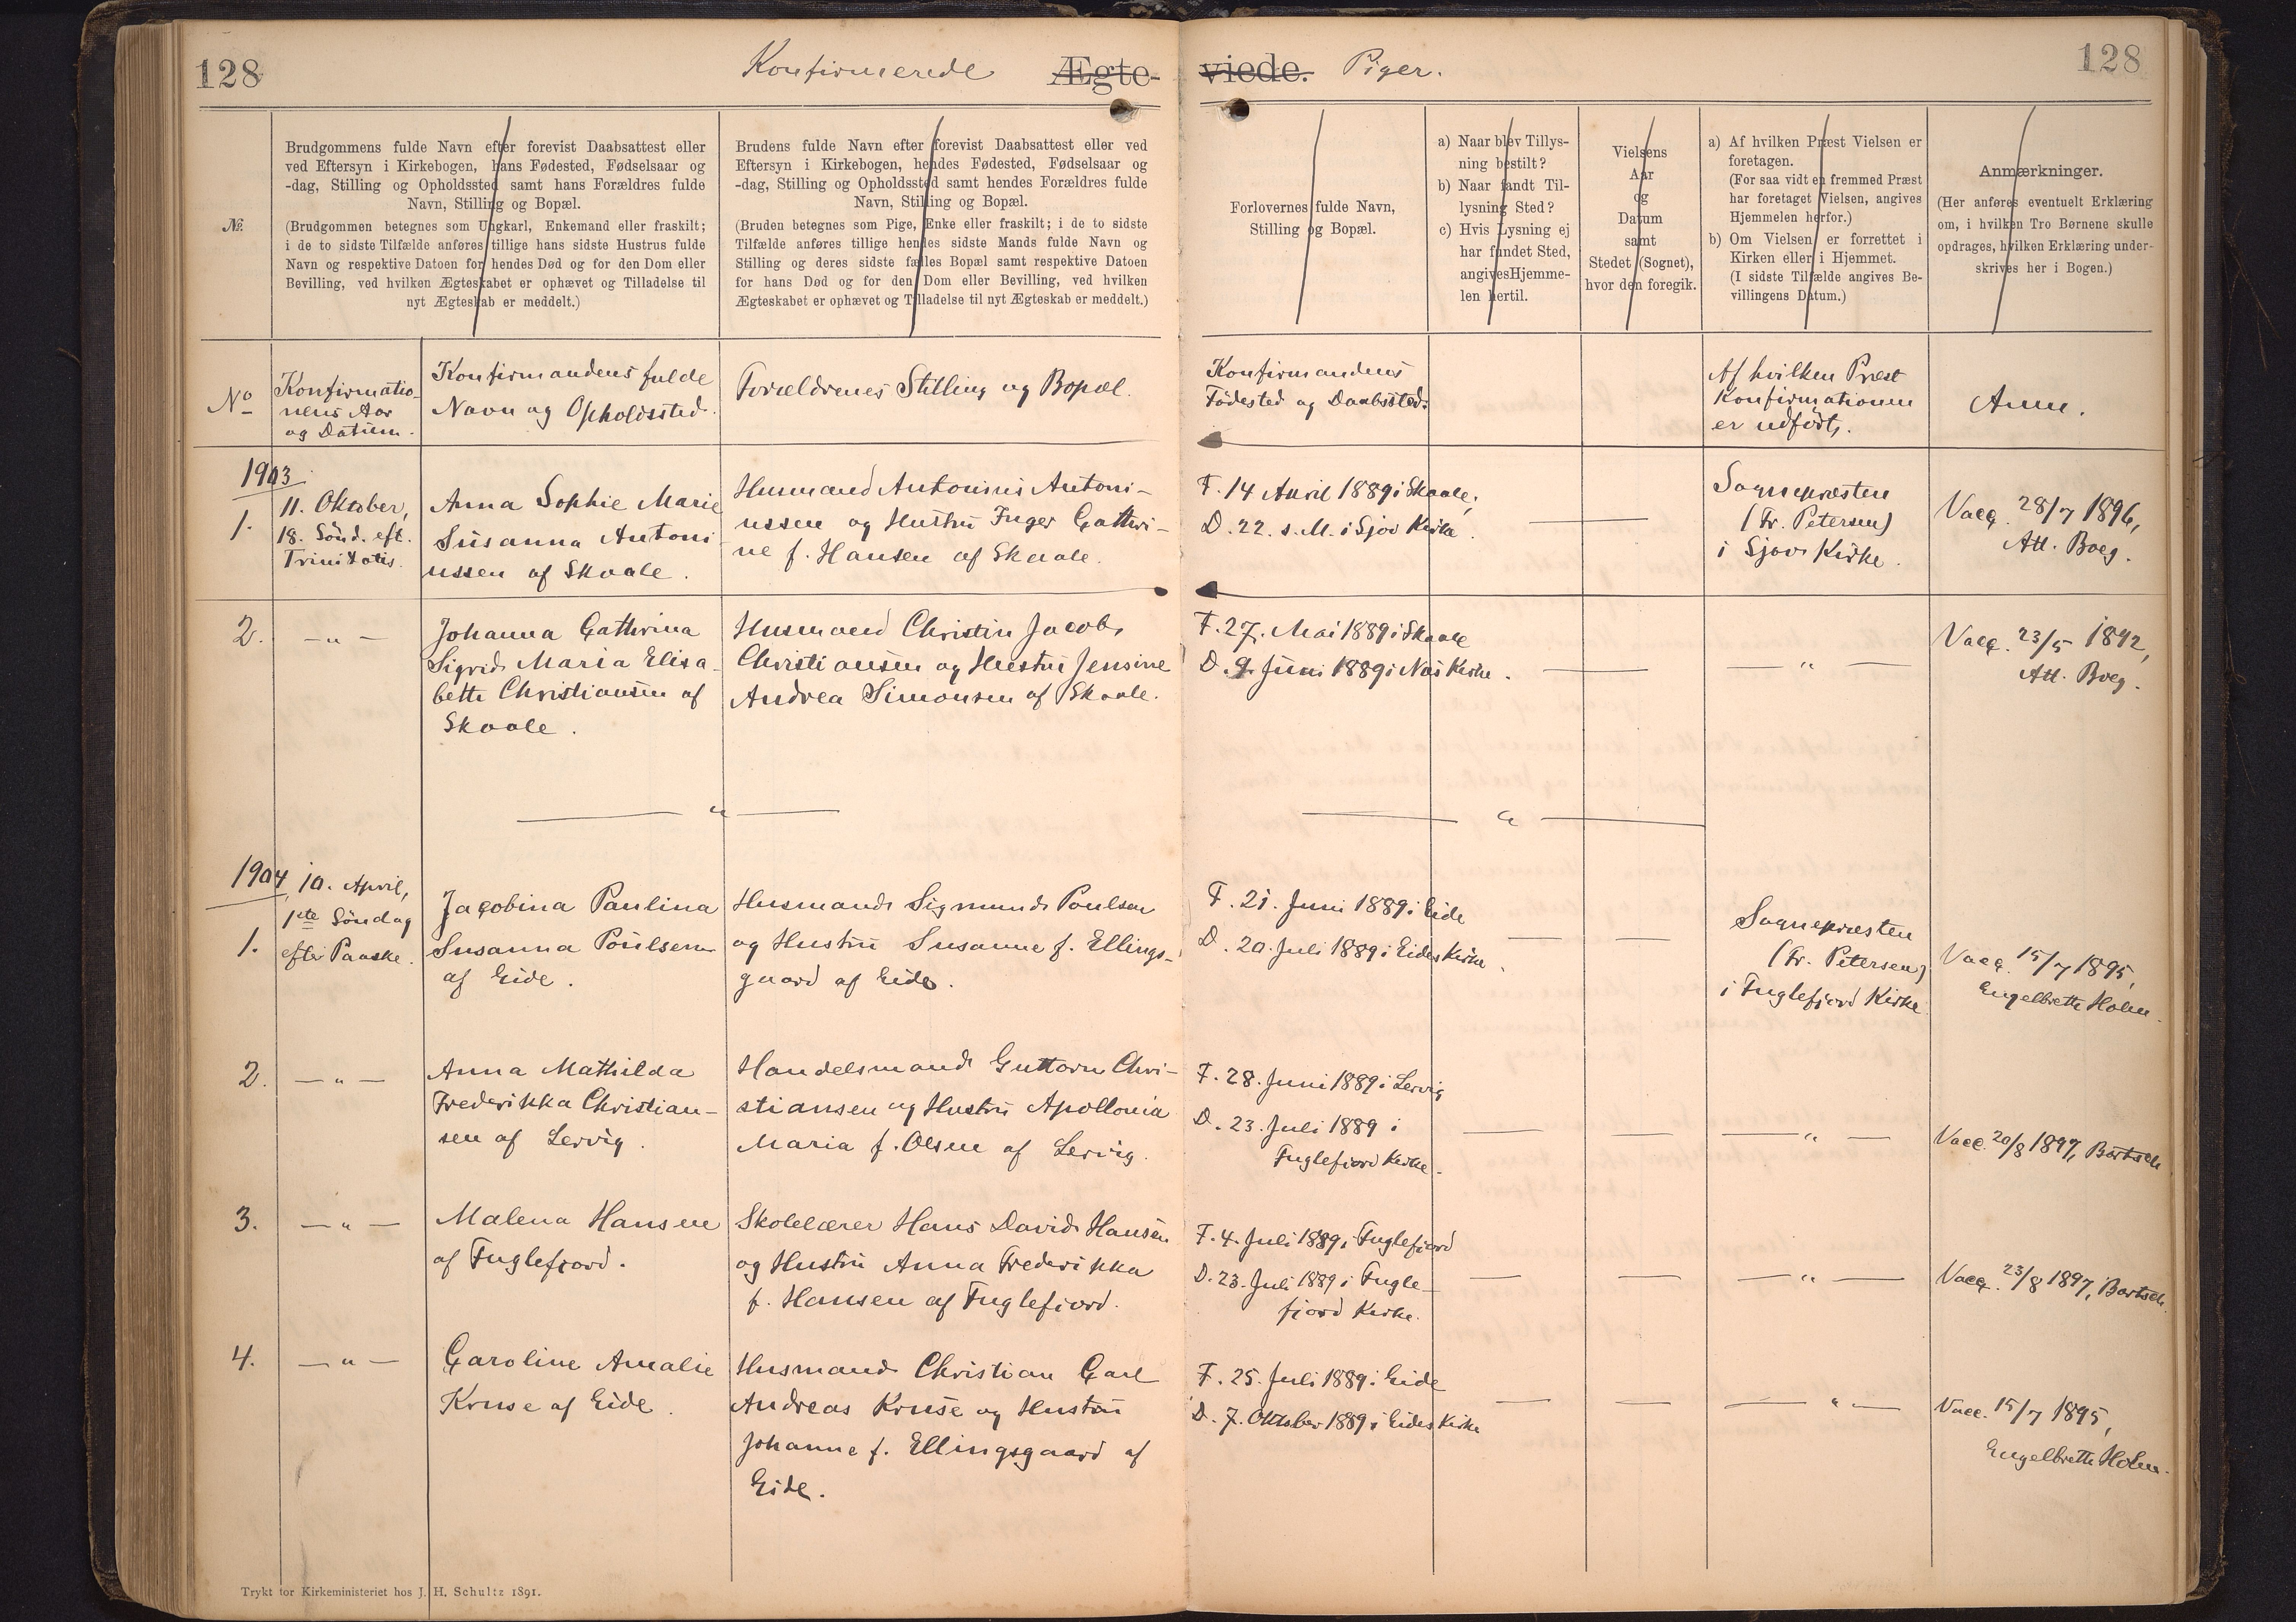 128
Konfirmerede Ægte-
viede. Piger.
128
No.
Brudgommens fulde Navn efter forevist Daabsattest eller
ved Eftersyn i Kirkebogen, hans Fødested, Fødselsaar og
-dag, Stilling og Opholdssted samt hans Forældres fulde
Navn, Stilling og Bopæl.
(Brudgommen betegnes som Ungkarl, Enkemand eller fraskilt;
i de to sidste Tilfælde anføres tillige hans sidste Hustrus fulde
Navn og respektive Datoen for hendes Død og for den Dom eller
Bevilling, ved hvilken Ægteskabet er ophævet og Tilladelse til
nyt Ægteskab er meddelt.)
Brudens fulde Navn efter forevist Daabsattest eller ved
Eftersyn i Kirkebogen, hendes Fødested, Fødselsaar og
-dag, Stilling og Opholdssted samt hendes Forældres fulde
Navn, Stilling og Bopæl.
(Bruden betegnes som Pige, Enke eller fraskilt; i de to sidste
Tilfælde anføres tillige hendes sidste Mands fulde Navn og
Stilling og deres sidste fælles Bopæl samt respektive Datoen
for hans Død og for den Dom eller Bevilling, ved hvilken
Ægteskabet er ophævet og Tilladelse til nyt Ægteskab er meddelt.)
Forlovernes fulde Navn,
Stilling og Bopæl.
a) Naar blev Tillys-
ning bestilt?
b) Naar fandt Til-
lysning Sted?
c) Hvis Lysning ej
har fundet Sted,
angives Hjemme-
len hertil.
Vielsens
Aar
og
Datum
samt
Stedet (Sognet),
hvor den foregik.
a) Af hvilken Præst Vielsen er
foretagen.
(For saa vidt en fremmed Præst
har foretaget Vielsen, angives
Hjemmelen herfor.)
b) Om Vielsen er forrettet i
Kirken eller i Hjemmet.
(I sidste Tilfælde angives Be-
villingens Datum.)
Anmærkninger.
(Her anføres eventuelt Erklæring
om, i hvilken Tro Børnene skulle
opdrages, hvilken Erklæring under-
skrives her i Bogen.)
No
Konfirmatio-
nens Aar
og Datum.
Konfirmandens fulde
Navn og Opholdssted.
Forældrenes Stilling og Bopæl.
Konfirmandens
Födested og Daabssted.
Af hvilken Præst
Konfirmationen
er udført.
Anm.
1903
1.
11. Oktober,
18. Sönd. eft.
Trinitatis.
Anna Sophie Marie
Susanna Antoni
ussen af Skaale.
Husmand Antonius Antoni-
ussen og Hustru Inger Cathri-
ne f. Hansen af Skaale.
F. 14 April 1889 i Skaale,
D. 22. s. M. i Sjov Kirke.
Sognepræsten
(Fr. Petersen)
i Sjov Kirke.
Vacc. 28/7 1896,
Att. Boeg.
2.
— " —
Johanna Cathrina
Sigrid Maria Elisa-
beth Christiansen af
Skaale.
Husmand Christin Jacob
Christiansen og Hustru Jensine
Andrea Simonsen af Skaale.
F. 27. Mai 1889 i Skaale
D. 9. Juni 1889 i Næs Kirke.
— " —
Vacc. 23/5 1892,
Att. Boeg.
— " —
— " —
1904
1.
10. April,
1ste Söndag
efter Paaske.
Jacobina Paulina
Susanna Poulsen
af Eide.
Husmand Sigmund Poulsen
og Hustru Susanne f. Ellings-
gaard af Eide.
F. 21. Juni 1889 i Eide
D. 20. Juli 1889 i Eides Kirke.
Sognepræsten
(Fr. Petersen)
i Fuglefjord Kirke
Vacc. 15/7 1895,
Engelbreth Holm.
2.
— " —
Anna Mathilda
Frederikka Christian-
sen af Lervig.
Handelsmand Guttorm Chri-
stiansen og Hustru Apollonia
Maria f. Olsen af Lervig.
F. 28. Juni 1889 i Lervig
D. 23. Juli 1889 i
Fuglefjord Kirke.
— " —
Vacc. 20/8 1897, Bartsch
3.
— " —
Malena Hansen
af Fuglefjord.
Skolelærer Hans David Hansen
og Hustru Anna Frederikka
f. Hansen af Fuglefjord.
F. 4. Juli 1889 i Fuglefjord
D. 23. Juli 1889 i Fugle-
fjord Kirke.
— " —
Vacc. 23/8 1897, Bartsch.
4.
— " —
Caroline Amalie
Kruse af Eide.
Husmand Christian Carl
Andreas Kruse og Hustru
Johanne f. Ellingsgaard af
Eide.
F. 25. Juli 1889 i Eide
D. 7. Oktober 1889 i Eides Kirke
— " —
Vacc. 15/7 1895,
Engelbreth Holm.
Trykt for Kirkeministeriet hos J. H. Schultz 1891.